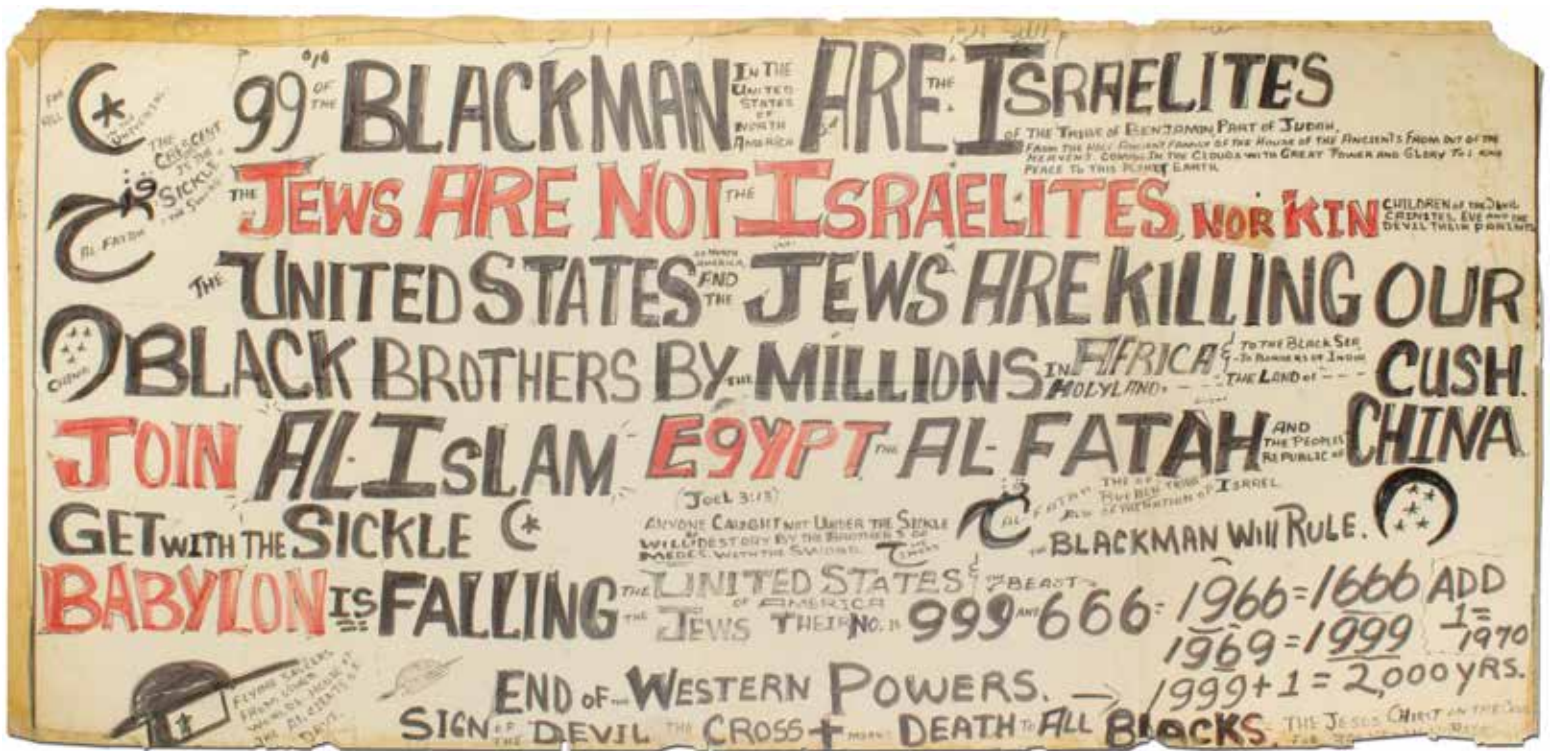 99% OF THE BLACKMAN IN THE UNITED STATES OF NORTH AMERICA ARE THE ISRAELITES
OF THE TRIBE OF BENJAMIN, PART OF JUDAH,
FROM THE HOLY ANCIENT FAMILY OF THE HOUSE OF THE ANCIENTS FROM OUT OF THE
HEAVENS. COMING IN THE CLOUDS WITH GREAT POWER AND GLORY TO
PEACE TO THIS PLANET EARTH
THE CRESCENT
IS THE
SICKLE
AL-FATAH
THE JEWS ARE NOT THE ISRAELITES, NOR KIN
CHILDREN OF THE DEVIL
CAINITES, EVE AND THE
DEVIL THEIR PARENTS
THE UNITED STATES OF NORTH AMERICA AND THE JEWS ARE KILLING OUR
CHINA
BLACK BROTHERS BY THE MILLIONS IN AFRICA & HOLYLAND. TO THE BLACK SEA - TO BORDERS OF INDIA THE LAND OF --- CUSH.
JOIN AL-ISLAM EGYPT THE AL-FATAH AND THE PEOPLES REPUBLIC OF CHINA
GET WITH THE SICKLE
(JOEL 3:13)
ANYONE CAUGHT NOT UNDER THE SICKLE
WILL DESTORY BY THE BROTHERS OF
MEDES. WITH THE SWORD.
AL-FATAH THE OF
ISRAEL
THE BLACKMAN WILL RULE.
BABYLON IS FALLING THE UNITED STATES OF AMERICA & THE BEAST
THE JEWS THEIR NO. IS 999 AND 666 = 1966 = 1666 ADD
1969 = 1999 1 = 1970
1999 + 1 = 2,000 YRS.
FLYING SAUCERS
FROM
HOUSE OF
THE ANCIENTS OF
DAYS.
END OF WESTERN POWERS.
SIGN OF THE DEVIL THE CROSS + MEANS DEATH TO ALL BLACKS. THE JESUS CHRIST ON THE